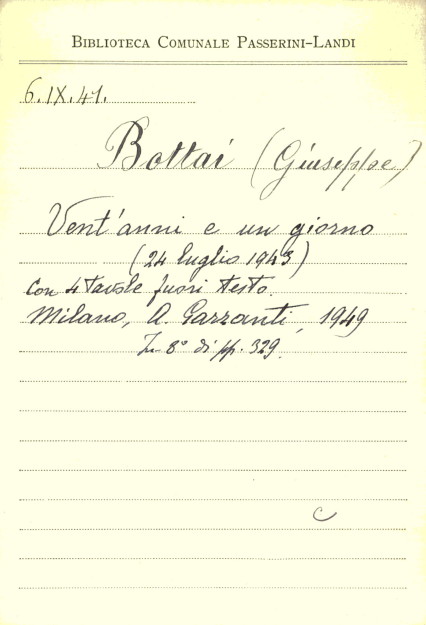 BIBLIOTECA COMUNALE PASSERINI-LANDI
6.IX.41.
Bottai (Giuseppe)
Vent'anni e un giorno
(24 luglio 1943)
con 4 tavole fuori testo.
Milano, A. Garzanti, 1949
In-8° di pp. 329.
C